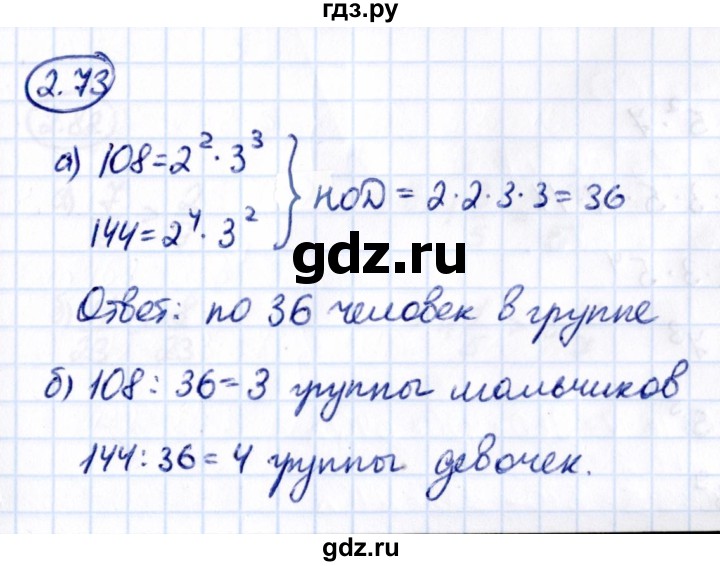 гдз.ру
2.73
а) 108=2²·3³
144=2⁴·3²
} НОД = 2·2·3·3=36
gdz.ru
Ответ: по 36 человек в группе
б) 108: 36=3 группы мальчиков
144:36=4 группы девочек.
gdz.ru